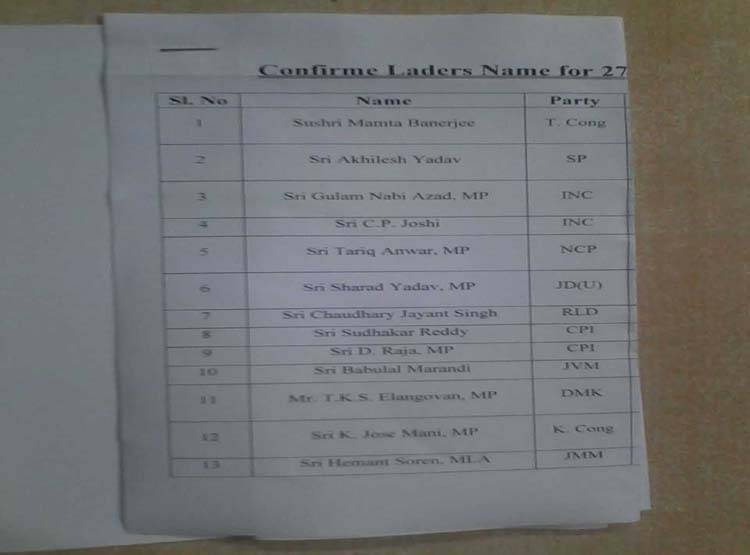 Confirme Laders Name for 27
SL No Name Party
1 Sushri Mamta Banerjee T. Cong
2 Sri Akhilesh Yadav SP
3 Sri Gulam Nabi Azad, MP INC
4 Sri C.P. Joshi INC
5 Sri Tariq Anwar, MP NCP
6 Sri Sharad Yadav, MP JD(U)
7 Sri Chaudhary Jayant Singh RLD
8 Sri Sudhakar Reddy CPI
9 Sri D. Raja, MP CPI
10 Sri Babulal Marandi JVM
11 Mr. T.K.S. Elangovan, MP DMK
12 Sri K. Jose Mani, MP K. Cong
13 Sri Hemant Soren, MLA JMM